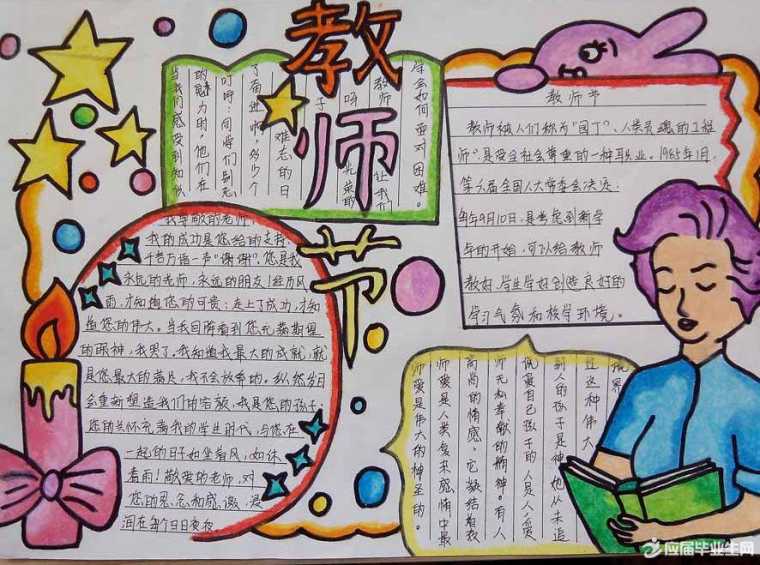 教师节
当我们感受到知识
的魅力时，他们在
叮咛；同
了奋进啊，多少个
难忘的日
子
呀
教师
让我们
学会如何面对困难。
教师节
教师被人们称为“园丁”、“人类灵魂的工程
师”是受全社会尊重的一种职业。1985年1月，
第六届全国人大常委会决定：
每年9月10日，是考虑到新学
年的开始，可以给教师
教好、学生学好创造良好的
学习气氛和校学环境。
我尊敬的老师，
我的成功是您给的支持。
千言万语一节“谢谢”。您是我
永远的老师，永远的朋友！经历风
雨，才知道您的可贵；走上了成功，才知
道您的伟大。当我回眸看到您充满期望
的眼神，我哭了。我知道我最大的成就，就
是您最大的满足，我不会放弃的。纵然岁月
会重新塑造我们的容颜，我是您的孩子；
您的关怀充盈我的学生时代，与您在
一起的日子如坐春风，如沐
春雨！敬爱的老师，对
您的思念和感激，浸
润在每个日日夜夜
师爱是伟大的神圣的。
师爱是人类复杂感情中最
高尚的情感，它凝结着教
师无私奉献的精神。有人
说爱自己孩子的人是人，爱
别人的孩子是神他从未追
且这种伟大
应届毕业生网